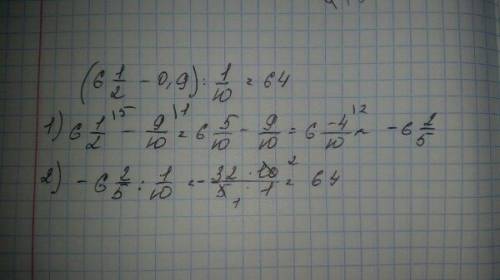 (6 1/2 - 0,9) : 1/10 = 64
1) 6 1/2 \5 - 9/10 \1 = 6 5/10 - 9/10 = 6 -4/10 \2 = -6 2/5
2) -6 2/5 : 1/10 = -32 · 10 2/5 1 · 1 = 64